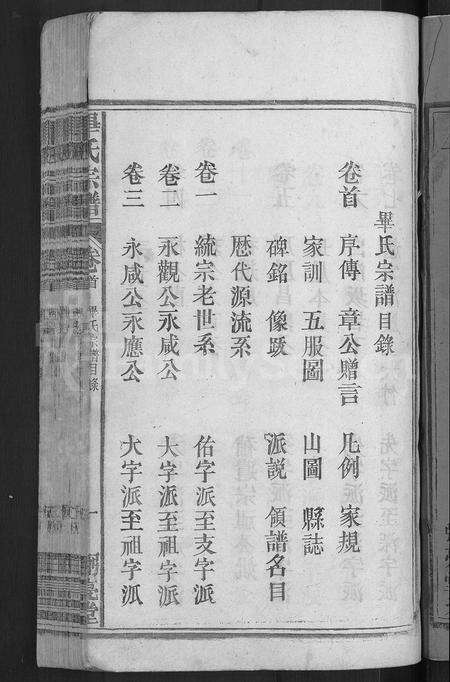 畢氏宗譜目錄
卷首 序傳 章公贈言 凡例 家規
家訓 五服圖 山圖 縣誌
碑銘 像跋 派説 領譜名目
歴代源流系
卷一 統宗老世系 佑字派至支字派
卷二 永觀公永咸公 大字派至祖字派
卷三 永咸公永應公 大字派至祖字派
畢氏宗譜 卷首 畢氏宗譜目錄 一